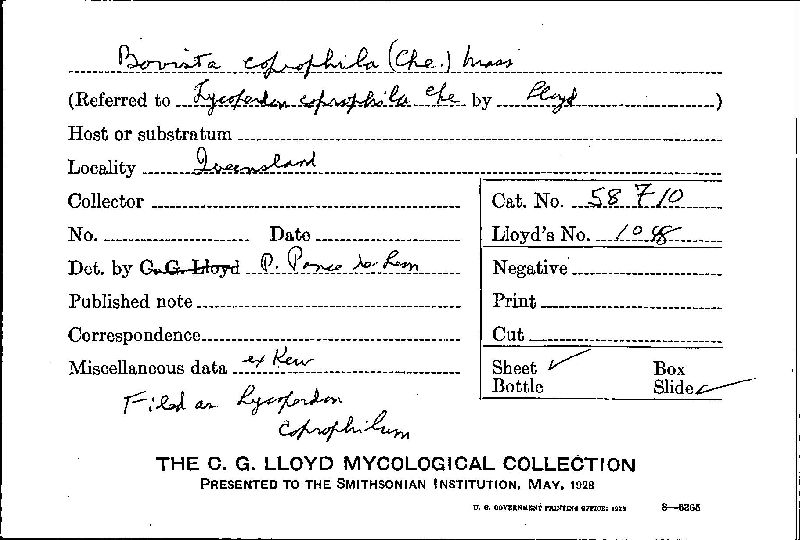 Bovista coprophila (Cke.) Mass
(Referred to Lycoperdon coprophila Cke by Lloyd)
Host or substratum
Locality Queensland
Collector
Cat. No. 58710
No. Date
Lloyd's No.
Det. by C. G. Lloyd P. Ponce de Leon
Negative
Published note
Print
Correspondence
Cut
Miscellaneous data ex Kew
Sheet ✓ Box
Bottle Slide ✓
Filed as Lycoperdon
coprophilum
THE C. G. LLOYD MYCOLOGICAL COLLECTION
PRESENTED TO THE SMITHSONIAN INSTITUTION, MAY, 1928
U. S. GOVERNMENT PRINTING OFFICE: 1928 8—6265